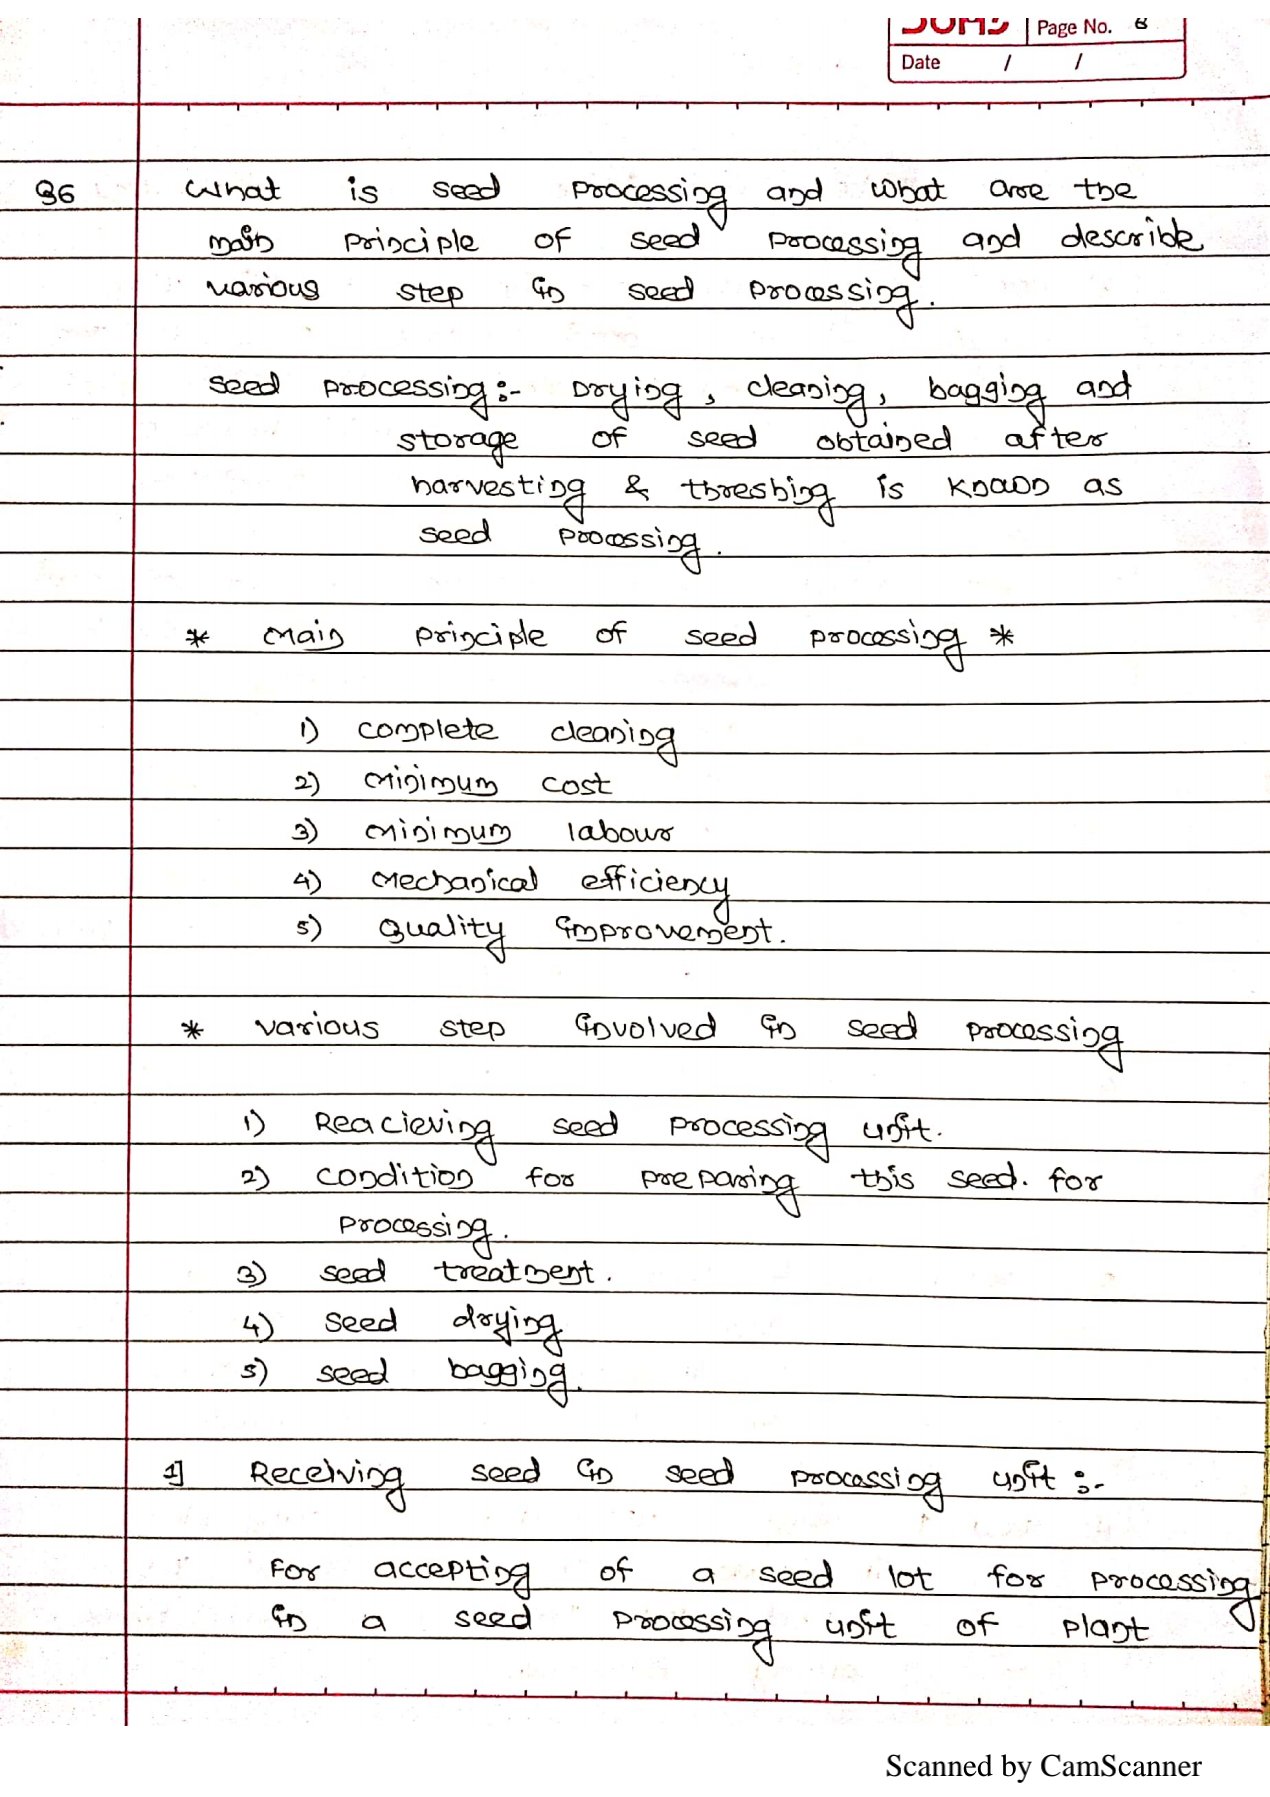 Page No. 8
Date / /
Q6 What is seed processing and what are the
main principle of seed processing and describe
various step in seed processing.
seed processing:- Drying, cleaning, bagging and
storage of seed obtained after
harvesting & threshing is known as
seed processing.
* Main principle of seed processing *
1) complete cleaning
2) Minimum cost
3) Minimum labour
4) Mechanical efficiency
5) Quality improvement.
* various step involved in seed processing
1) Reacieving seed processing unit.
2) condition for preparing this seed. for
processing.
3) seed treatment.
4) seed drying
5) seed bagging.
1] Receiving seed in seed processing unit :-
For accepting of a seed lot for processing
in a seed processing unit of plant
Scanned by CamScanner